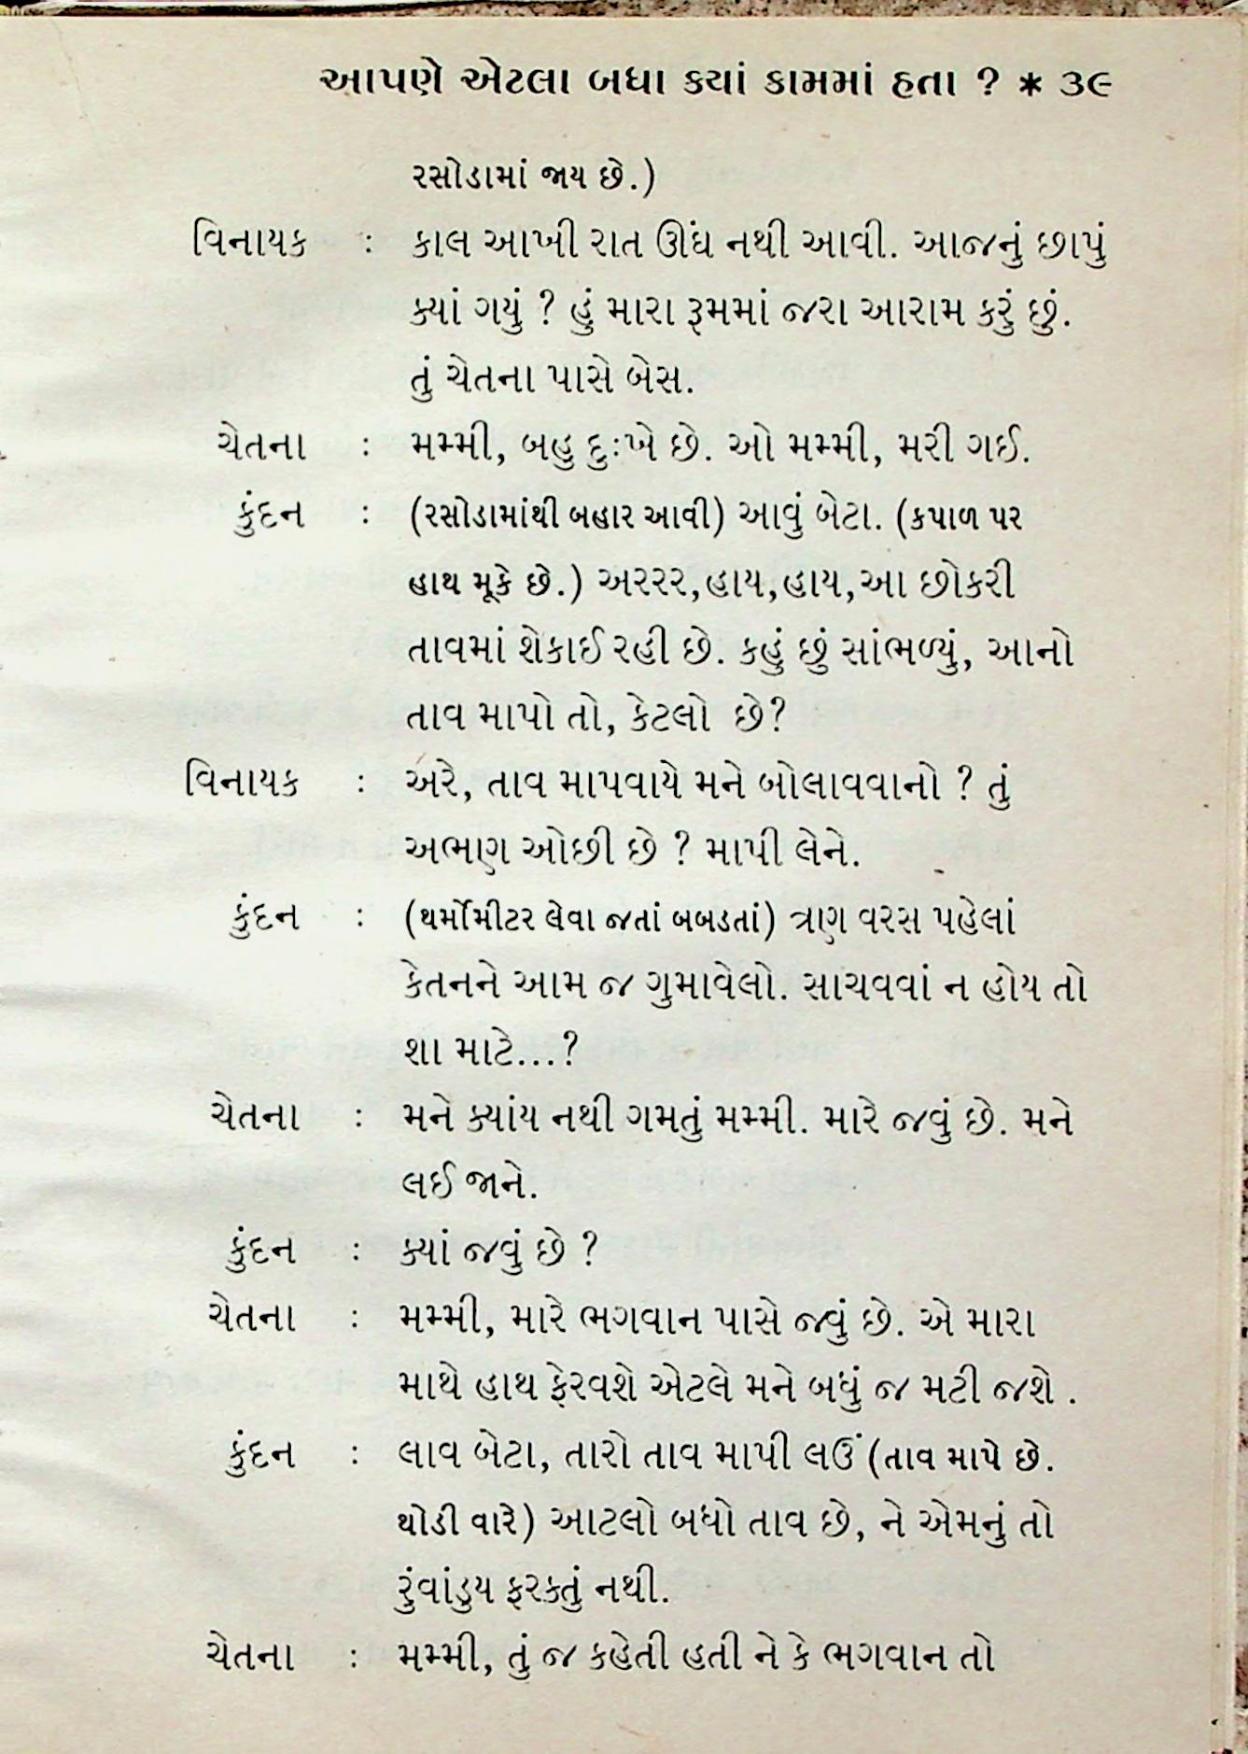 આપણે એટલા બધા ક્યાં કામમાં હતા ? * ૩૯
રસોડામાં જાય છે.)
વિનાયક : કાલ આખી રાત ઊંઘ નથી આવી. આજનું છાપું
ક્યાં ગયું ? હું મારા રૂમમાં જરા આરામ કરું છું.
તું ચેતના પાસે બેસ.
ચેતના : મમ્મી, બહુ દુઃખે છે. ઓ મમ્મી, મરી ગઈ.
કુંદન : (રસોડામાંથી બહાર આવી) આવું બેટા. (કપાળ પર
હાથ મૂકે છે.) અરરર,હાય,હાય,આ છોકરી
તાવમાં શેકાઈ રહી છે. કહું છું સાંભળ્યું, આનો
તાવ માપો તો, કેટલો છે?
વિનાયક : અરે, તાવ માપવાયે મને બોલાવવાનો ? તું
અભણ ઓછી છે ? માપી લેને.
કુંદન : (થર્મોમીટર લેવા જતાં બબડતાં) ત્રણ વરસ પહેલાં
કેતનને આમ જ ગુમાવેલો. સાચવવાં ન હોય તો
શા માટે...?
ચેતના : મને ક્યાંય નથી ગમતું મમ્મી. મારે જવું છે. મને
લઈ જાને.
કુંદન : ક્યાં જવું છે ?
ચેતના : મમ્મી, મારે ભગવાન પાસે જવું છે. એ મારા
માથે હાથ ફેરવશે એટલે મને બધું જ મટી જશે .
કુંદન : લાવ બેટા, તારો તાવ માપી લઉં (તાવ માપે છે.
થોડી વારે) આટલો બધો તાવ છે, ને એમનું તો
રુંવાંડુય ફરકતું નથી.
ચેતના : મમ્મી, તું જ કહેતી હતી ને કે ભગવાન તો